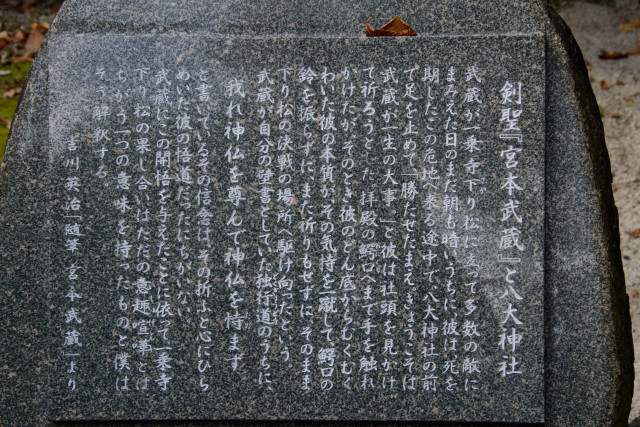 剣聖『宮本武蔵』と八大神社
武蔵が一乗寺下り松に立って多数の敵に
まみえた日のまだ朝も暗いうちに、彼は死を
期したこの危地へ来る途中で、八大神社の前
で足を止めて「勝たせたまえ。きょうこそは
武蔵が一生の大事。」と彼は社頭を見かけ
て祈ろうとした。拝殿の鰐口へまで手を触れ
かけたが、そのとき彼のどん底からむくむく
わいた彼の本質が、その気持を蹴して、鰐口の
鈴を振らずに、また祈りもせずに、そのまま
下り松の決戦の場所へ駆け向ったという。
武蔵が自分の壁書としていた独行道のうちに、
我れ神仏を尊んで神仏を恃まず
と書いているその信念は、その折ふと心にひら
めいた彼の悟道だったにちがいない。
武蔵にこの開悟を与えたことに依って一乗寺
下り松の果し合いはただの意趣喧嘩とは
ちがう一つの意味を持ったものと僕は
そう解釈する。
吉川英治「随筆 宮本武蔵」より